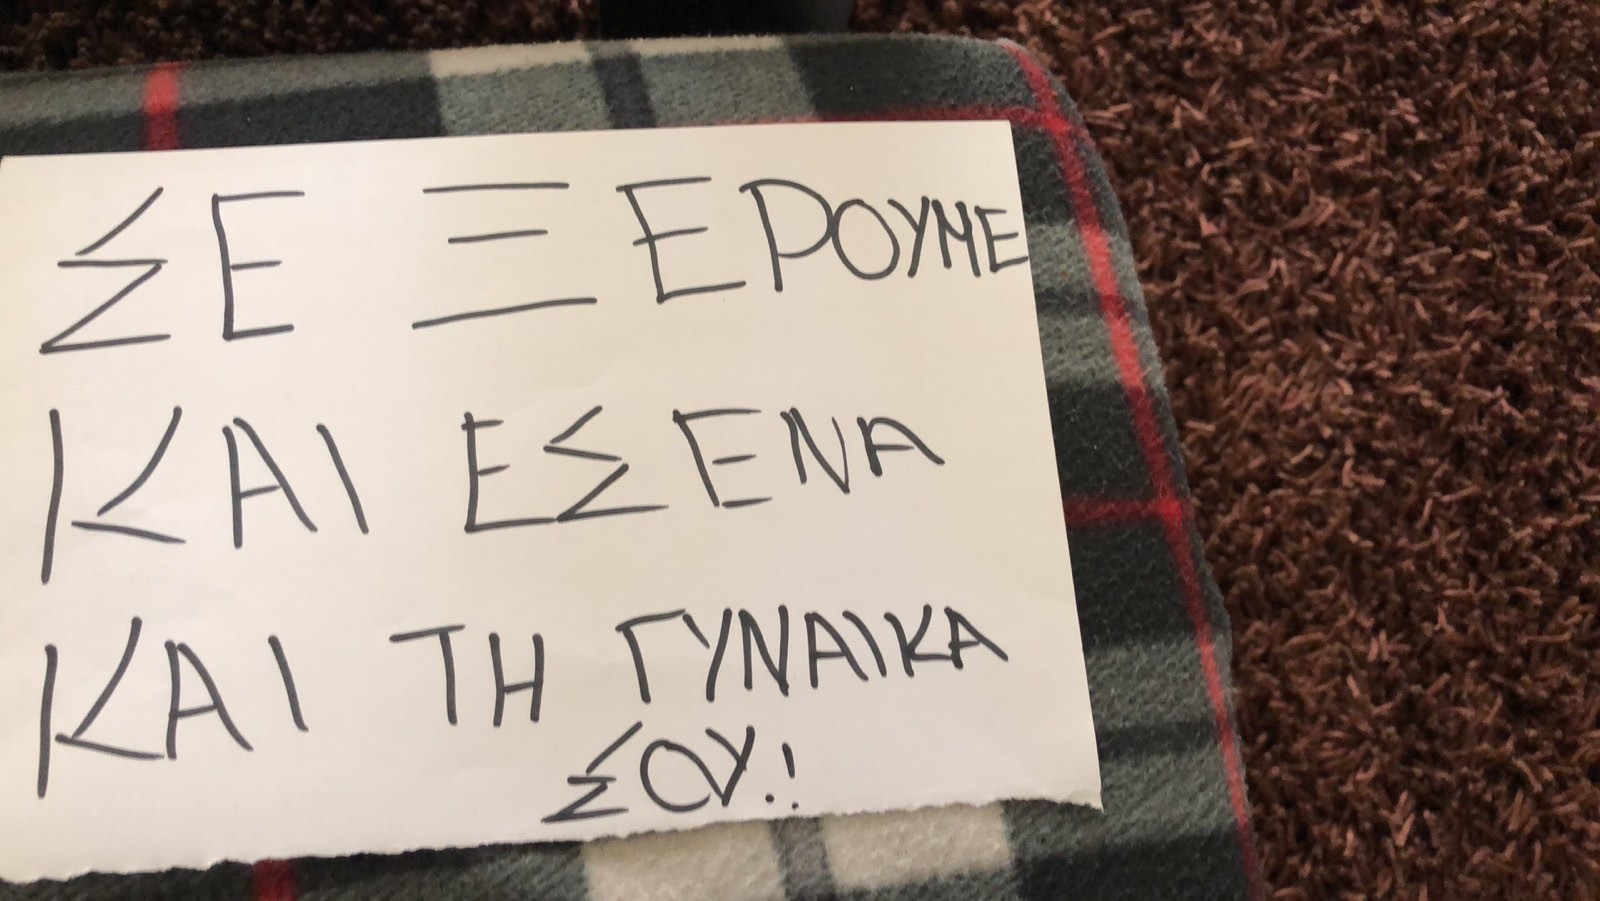 ΣΕ ΞΕΡΟΥΜΕ
ΚΑΙ ΕΣΕΝΑ
ΚΑΙ ΤΗ ΓΥΝΑΙΚΑ
ΣΟΥ.!